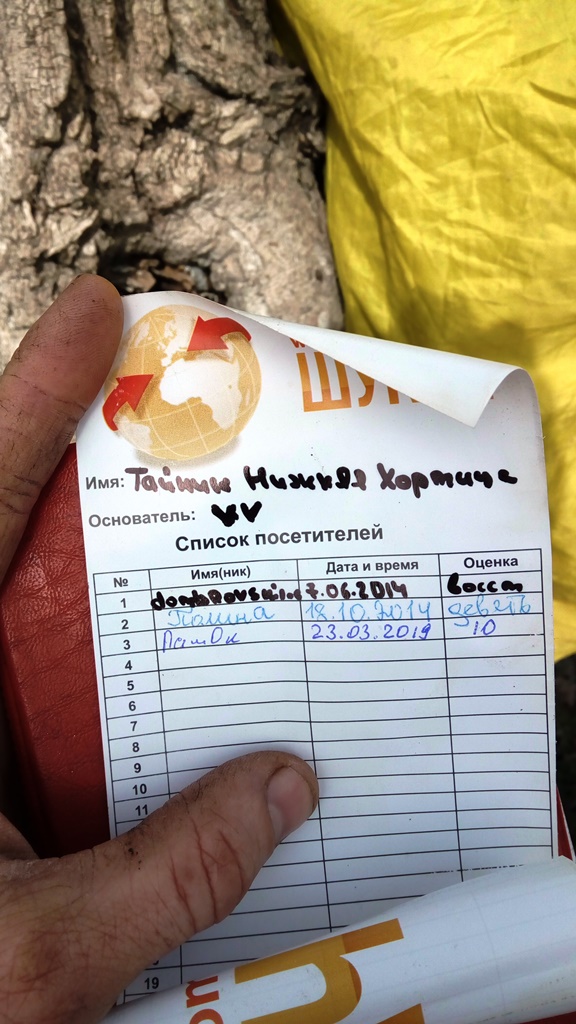 ШУК
Имя: Тайник Нижняя Хортица
Основатель: VV
Список посетителей
№ Имя(ник) Дата и время Оценка
1 dombrovskii 7.06.2014 Восст
2 Полина 18.10.2014 девять
3 23.03.2019 10
4
5
6
7
8
9
10
11
19